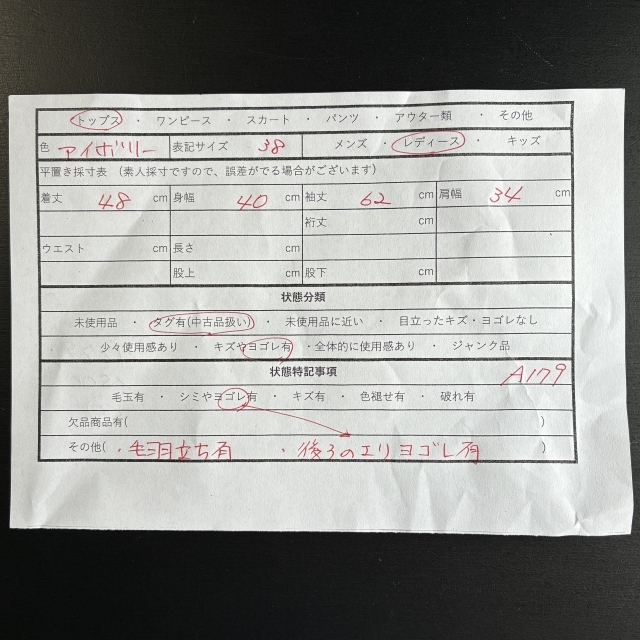 トップス ・ ワンピース ・ スカート ・ パンツ ・ アウター類 ・ その他
色 アイボリー 表記サイズ 38 メンズ ・ レディース ・ キッズ
平置き採寸表 （素人採寸ですので、誤差がでる場合がございます）
着丈 48 cm 身幅 40 cm 袖丈 62 cm 肩幅 34 cm
裄丈 cm
ウエスト cm 長さ cm
股上 cm 股下 cm
状態分類
未使用品 ・ タグ有(中古品扱い) ・ 未使用品に近い ・ 目立ったキズ・ヨゴレなし
少々使用感あり ・ キズやヨゴレ有 ・全体的に使用感あり ・ ジャンク品
状態特記事項 A179
毛玉有 ・ シミやヨゴレ有 ・ キズ有 ・ 色褪せ有 ・ 破れ有
欠品商品有( )
その他( ・毛羽立ち有 ・後ろのエリヨゴレ有 )